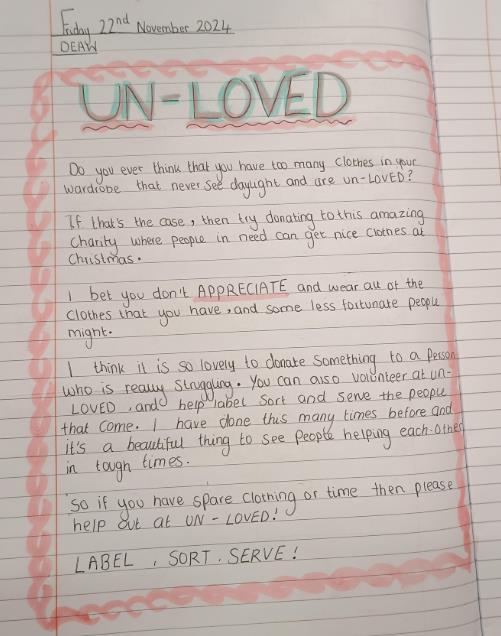 Friday 22nd November 2024
DEAW
UN-LOVED
Do you ever think that you have too many clothes in your
wardrobe that never see daylight and are un-LOVED?
If that's the case, then try donating to this amazing
Charity where people in need can get nice clothes at
Christmas.
I bet you don't APPRECIATE and wear all of the
clothes that you have, and some less fortunate people
might.
I think it is so lovely to donate something to a person
who is really struggling. You can also volunteer at un-
LOVED, and help label sort and serve the people
that come. I have done this many times before and
it's a beautiful thing to see people helping each-other
in tough times.
So if you have spare clothing or time then please
help out at UN-LOVED!
LABEL, SORT. SERVE!